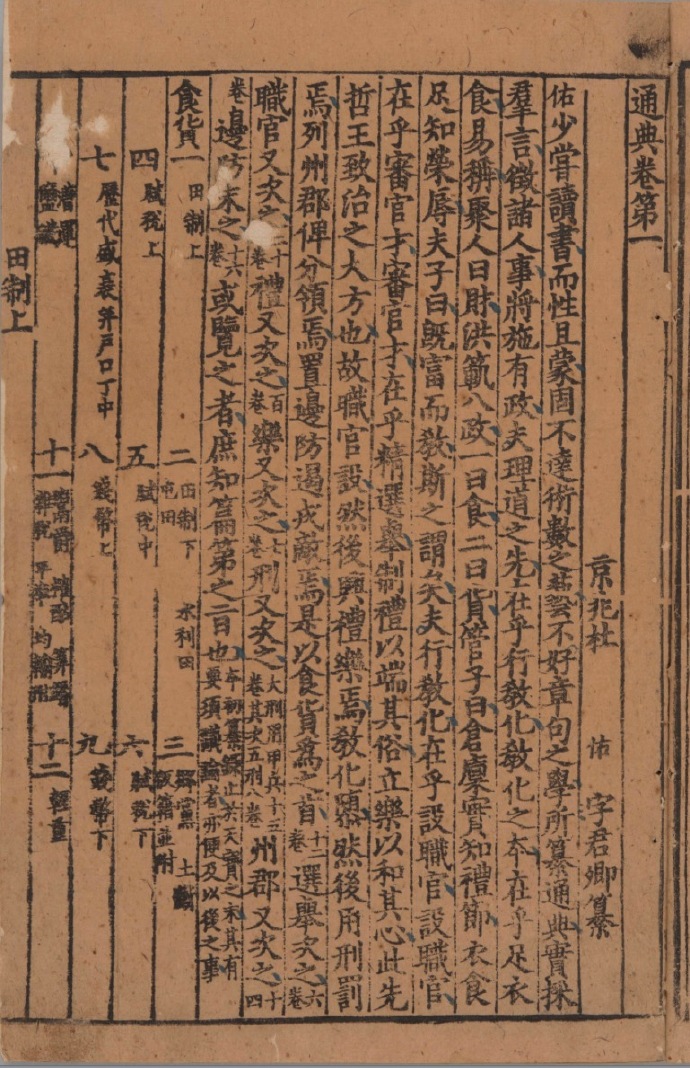 通典卷第一
京兆杜 佑 字君卿纂
佑少嘗讀書而性且蒙固不達術數之藝不好章句之學所纂通典實採
羣言徵諸人事將施有政夫理道之先在乎行教化教化之本在乎足衣
食易稱聚人曰財洪範八政一曰食二曰貨管子曰倉廩實知禮節衣食
足知榮辱夫子曰既富而教斯之謂矣夫行教化在乎設職官設職官
在乎審官才審官才在乎精選舉制禮以端其俗立樂以和其心此先
哲王致治之大方也故職官設然後興禮樂焉教化隳然後用刑罰
焉列州郡俾分領焉置邊防遏戎敵焉是以食貨爲之首十二卷選舉次之六卷
職官又次之二十卷禮又次之百卷樂又次之七卷刑又次之大刑用甲兵十三卷其次五刑八卷州郡又次之十四
卷邊防末之十六卷或覽之者庶知篇第之旨也本初纂錄止於天寶之末其有要須議論者亦便及以後之事
食貨一 田制上 二 田制下 水利田 屯田 三 鄉黨 土斷 版籍並附
四 賦稅上 五 賦稅中 六 賦稅下
七 歷代盛衰年戶口丁中 八 錢幣上 九 錢幣下
漕運 鹽鐵 十一 鬻爵 榷酤 算緡 雜稅 平準 均輸附 十二 輕重
田制上